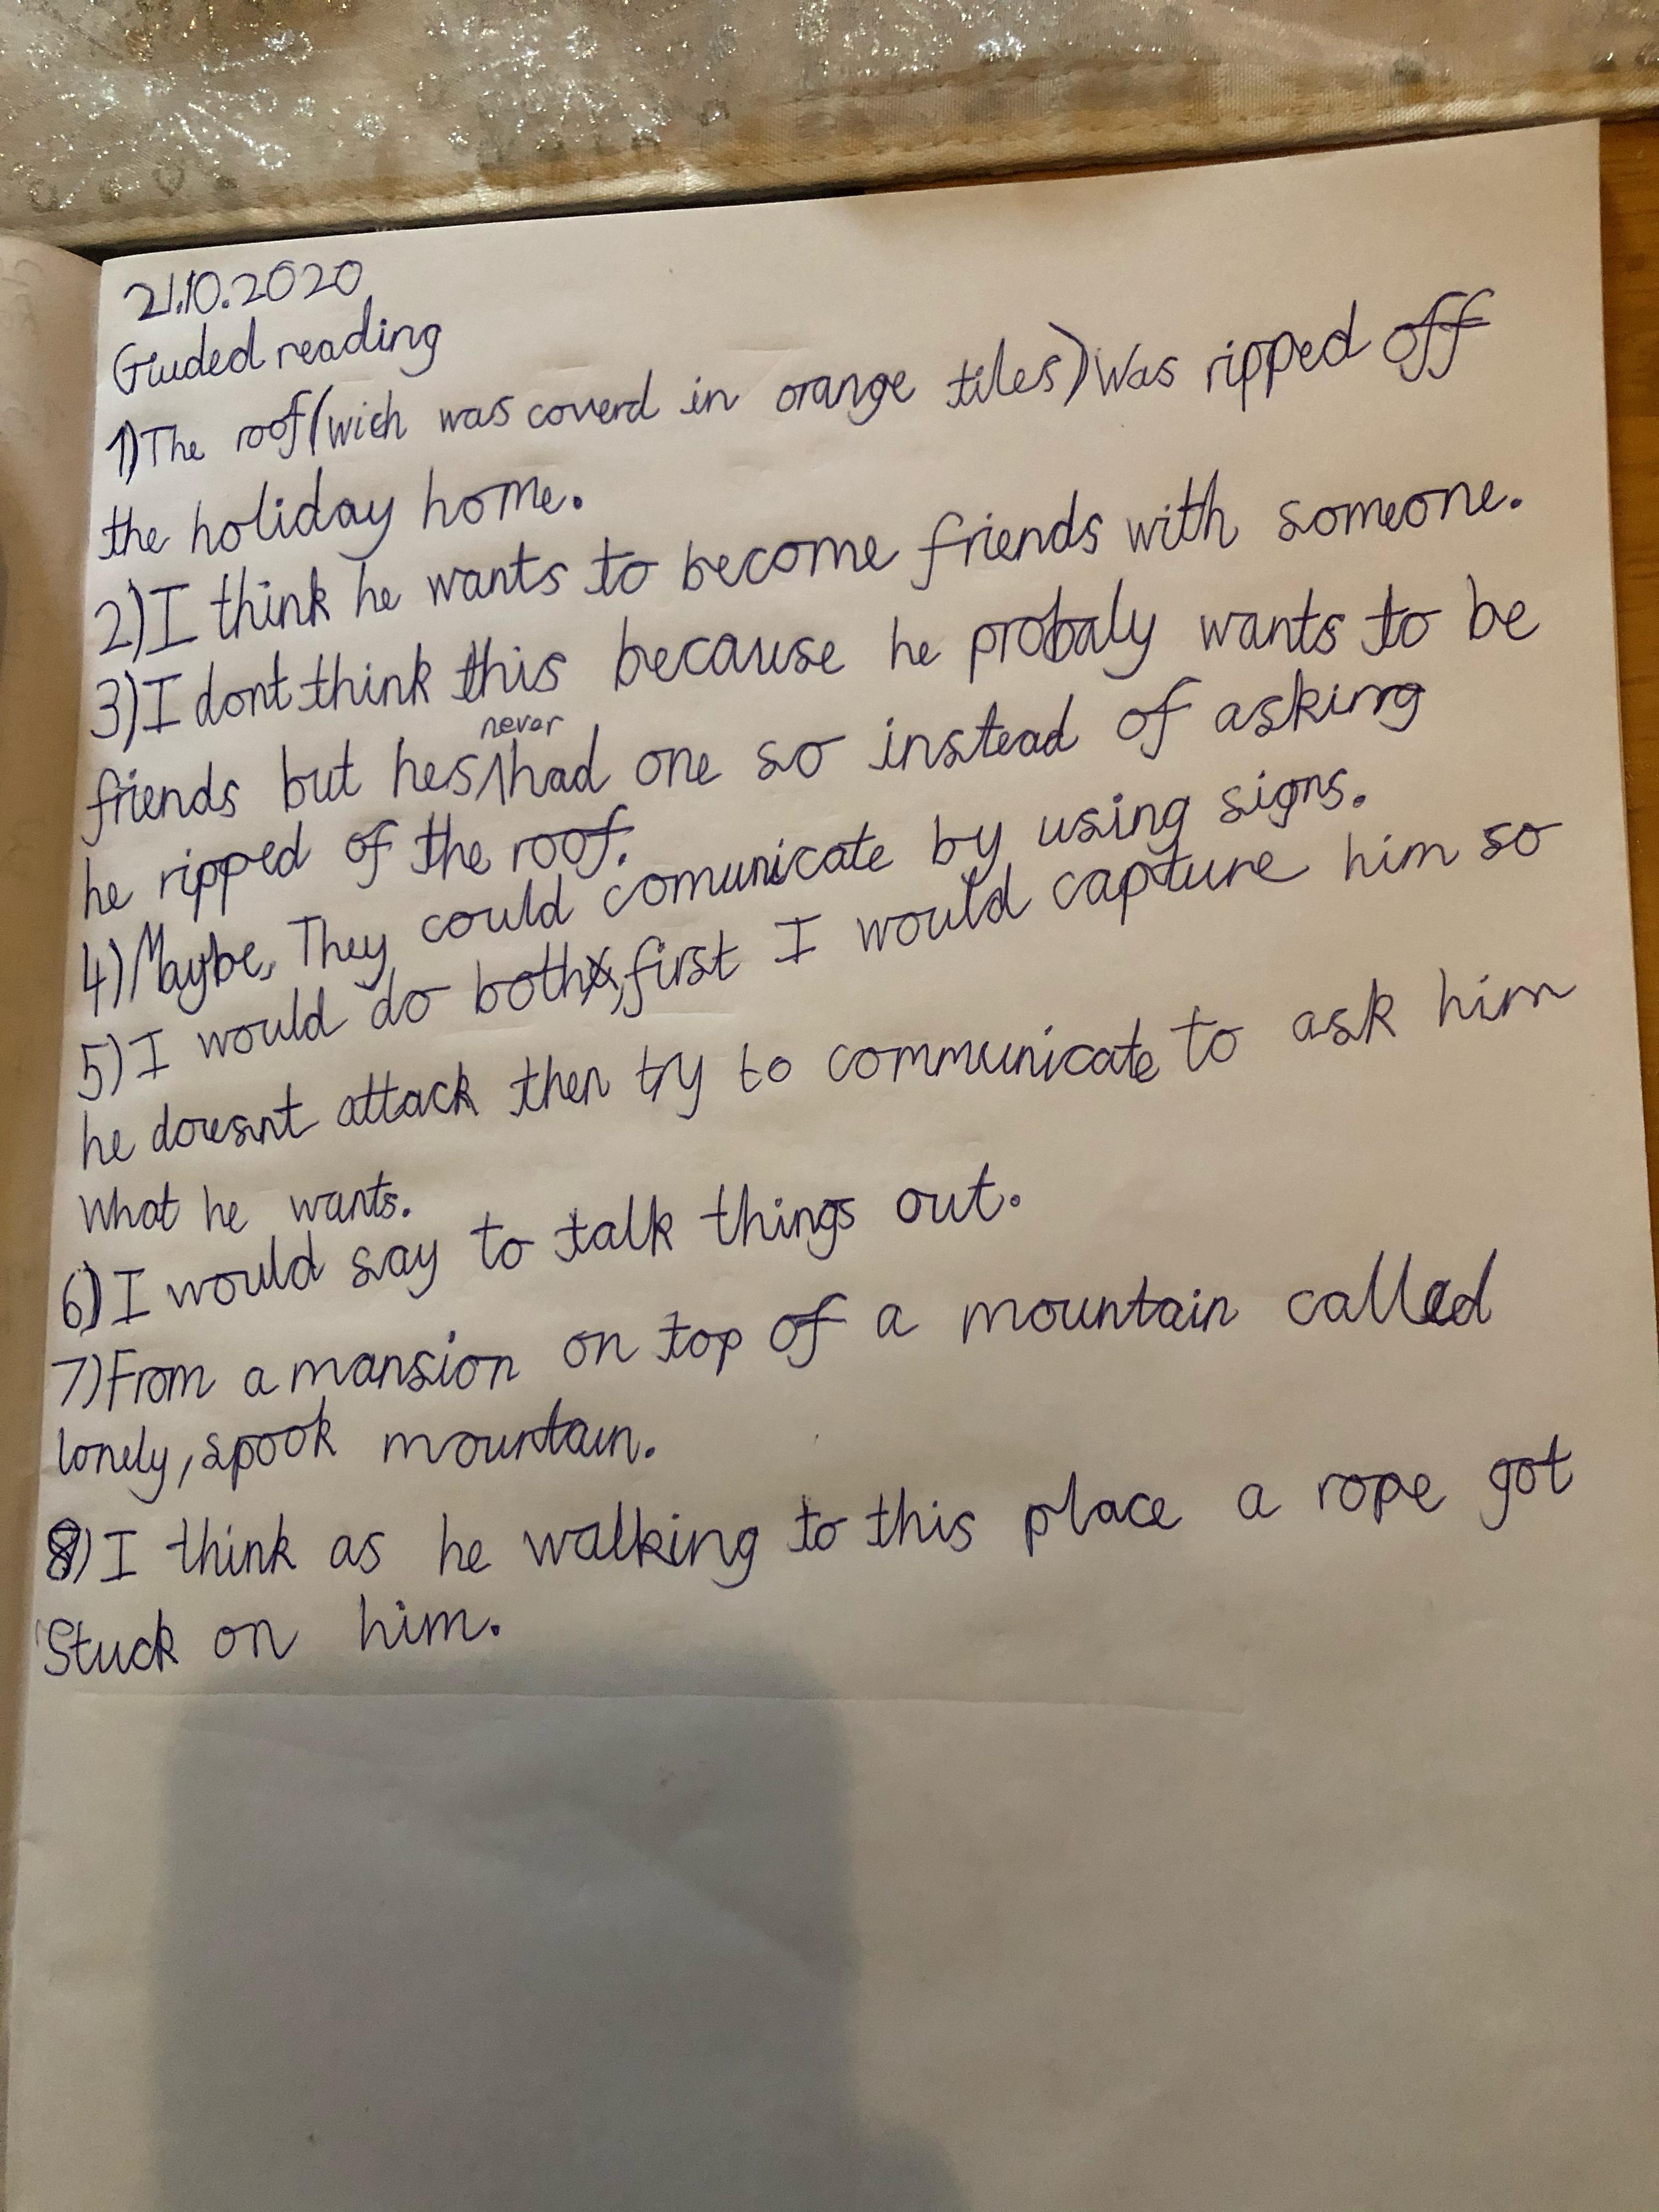 21.10.2020
Giuded reading
1) The roof (wich was coverd in orange tiles) Was ripped off
the holiday home.
2) I think he wants to become friends with someone.
3) I dont think this because he probaly wants to be
friends but hes never had one so instead of asking
he ripped of the roof.
4) Maybe, They could comunicate by using signs.
5) I would do both, first I would capture him so
he doesnt attack then try to communicate to ask him
What he wants.
6) I would say to talk things out.
7) From a mansion on top of a mountain called
lonely, spook mountain.
8) I think as he walking to this place a rope got
Stuck on him.